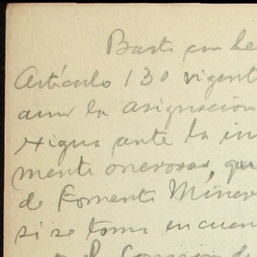 Basta con le
Artículo 130 vigent
aun la asignación
exigua ante la in
mente onerosa, que
de Fomento Minero
si se toma en cuen